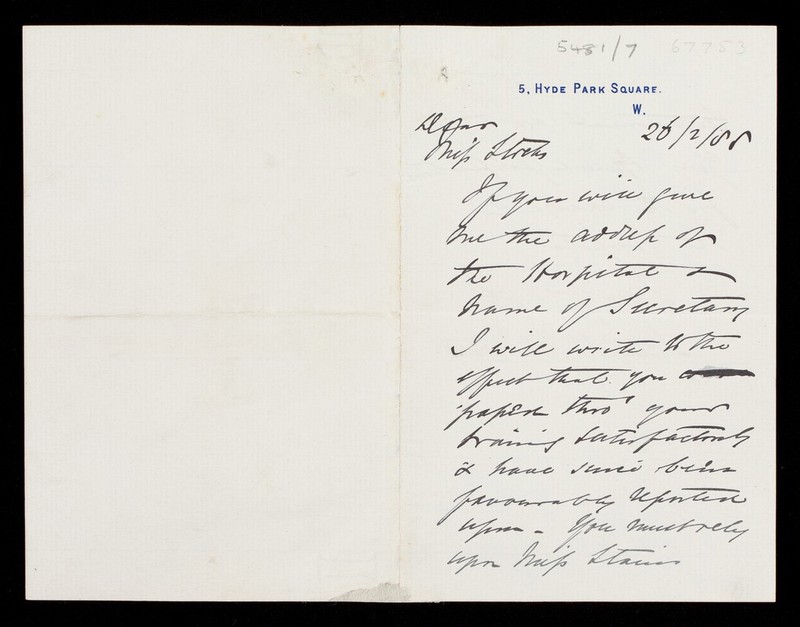 5481/7 67753
5, HYDE PARK SQUARE.
W.
26/2/88
Dear
Miss Stocks
If you will give
me the address of
the Hospital &
name of Secretary
I will write to the
effect that you
passed thro' your
training satisfactorily
& have since been
favourably reported
upon - You must rely
upon Miss Stains